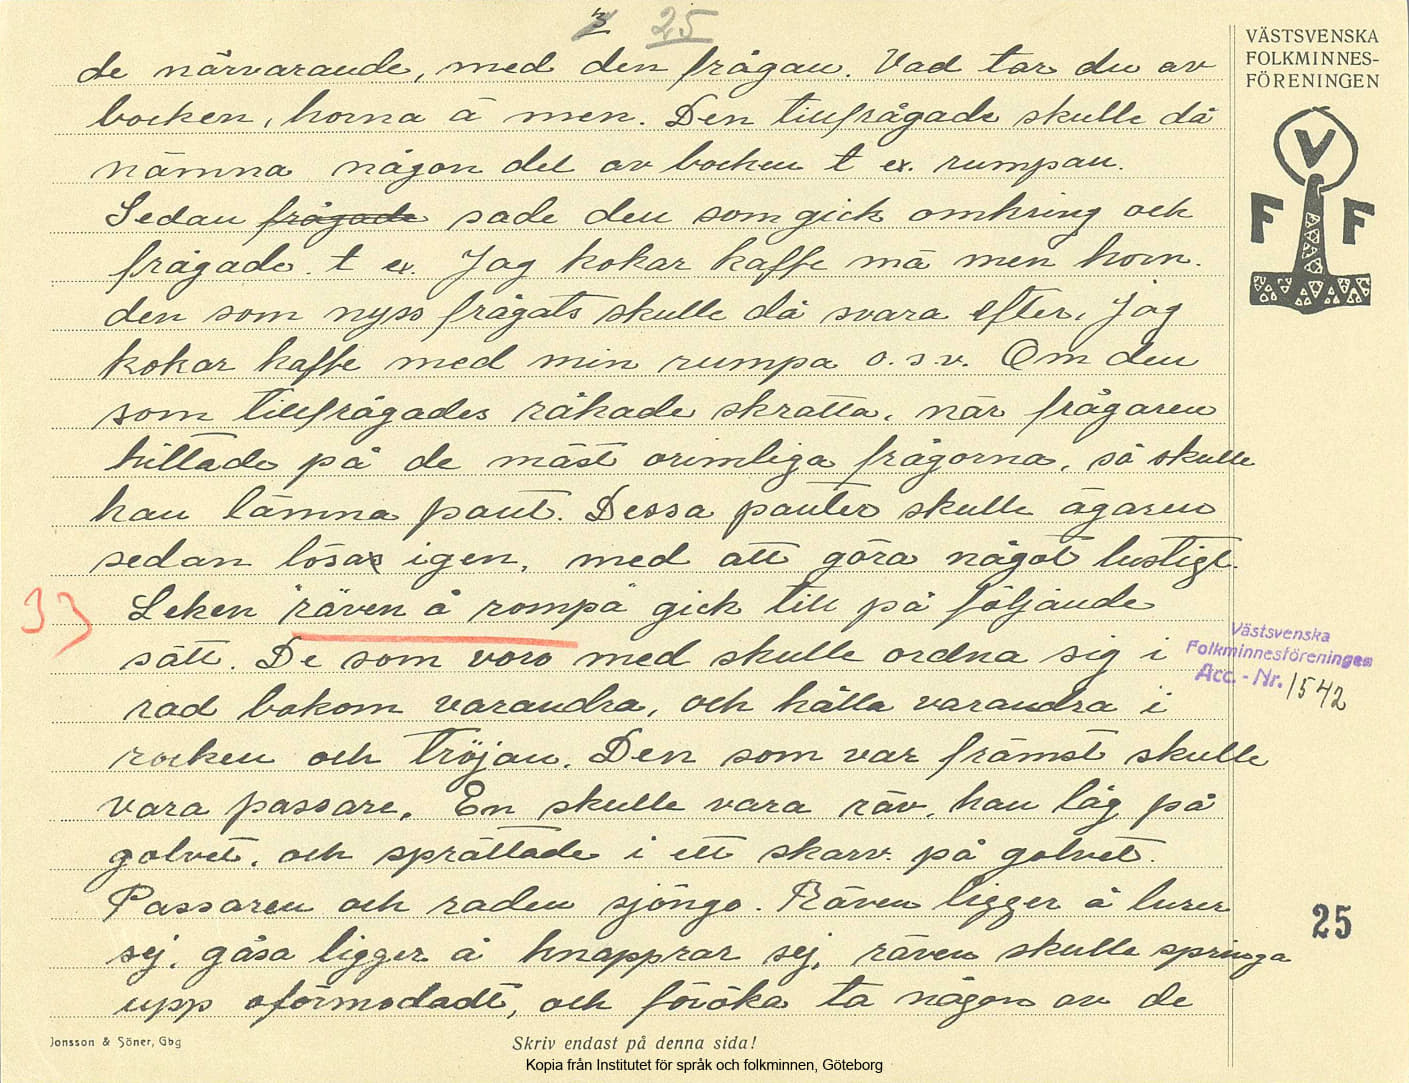 25
VÄSTSVENSKA
FOLKMINNES-
FÖRENINGEN
V
F F
de närvarande, med den frågan. Vad tar du av
bocken, horna å men. Den tillfrågade skulle då
nämna någon del av bocken t ex. rumpan.
Sedan frågade sade den som gick omkring och
frågade. t ex. Jag kokar kaffe mä men horn.
den som nyss frågats skulle då svara efter, Jag
kokar kaffe med min rumpa o.s.v. Om den
som tillfrågades råkade skratta, när frågaren
hittade på de mäst orimliga frågorna, så skulle
han lämna pant. Dessa panter skulle ägaren
sedan lösa igen, med att göra något lustigt.
33
Leken "räven å rompa" gick till på följande
sätt. De som voro med skulle ordna sig i
rad bakom varandra, och hålla varandra i
rocken och tröjan. Den som var främst skulle
vara passare. En skulle vara räv, han låg på
golvet, och sprättade i ett skarv på golvet.
Passaren och raden sjöngo. Räven ligger å lurer
sej, gåsa ligger å knapprar sej, räven skulle springa
upp oförmodadt, och försöka ta någon av de
Västsvenska
Folkminnesföreningen
Acc. - Nr. 1542
25
Jonsson & Söner, Gbg
Skriv endast på denna sida!
Kopia från Institutet för språk och folkminnen, Göteborg